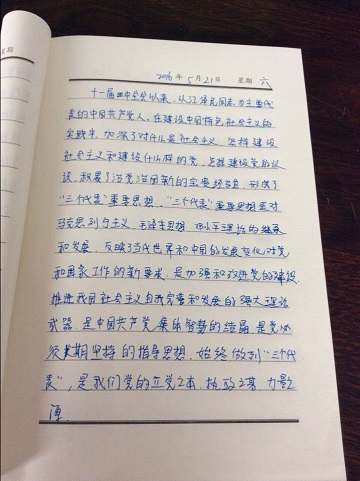 星期
2016年5月21日 星期六
十一届四中全会以来,从江泽民同志为主要代
表的中国共产党人,在建设中国特色社会主义的
实践中,加深了对什么是社会主义、怎样建设
社会主义和建设什么样的党、怎样建设党的认
识,积累了治党治国新的宝贵经验,形成了
"三个代表"重要思想。"三个代表"重要思想是对
马克思列宁主义、毛泽东思想、邓小平理论的继承
和发展,反映当代世界和中国的发展变化对党
和国家工作的新要求,是加强和改进党的建设、
推进我国社会主义自我完善和发展的强大理论
武器,是中国共产党集体智慧的结晶,是党必
须长期坚持的指导思想。始终做到"三个代
表",是我们党的立党之本、执政之基、力量之
源。